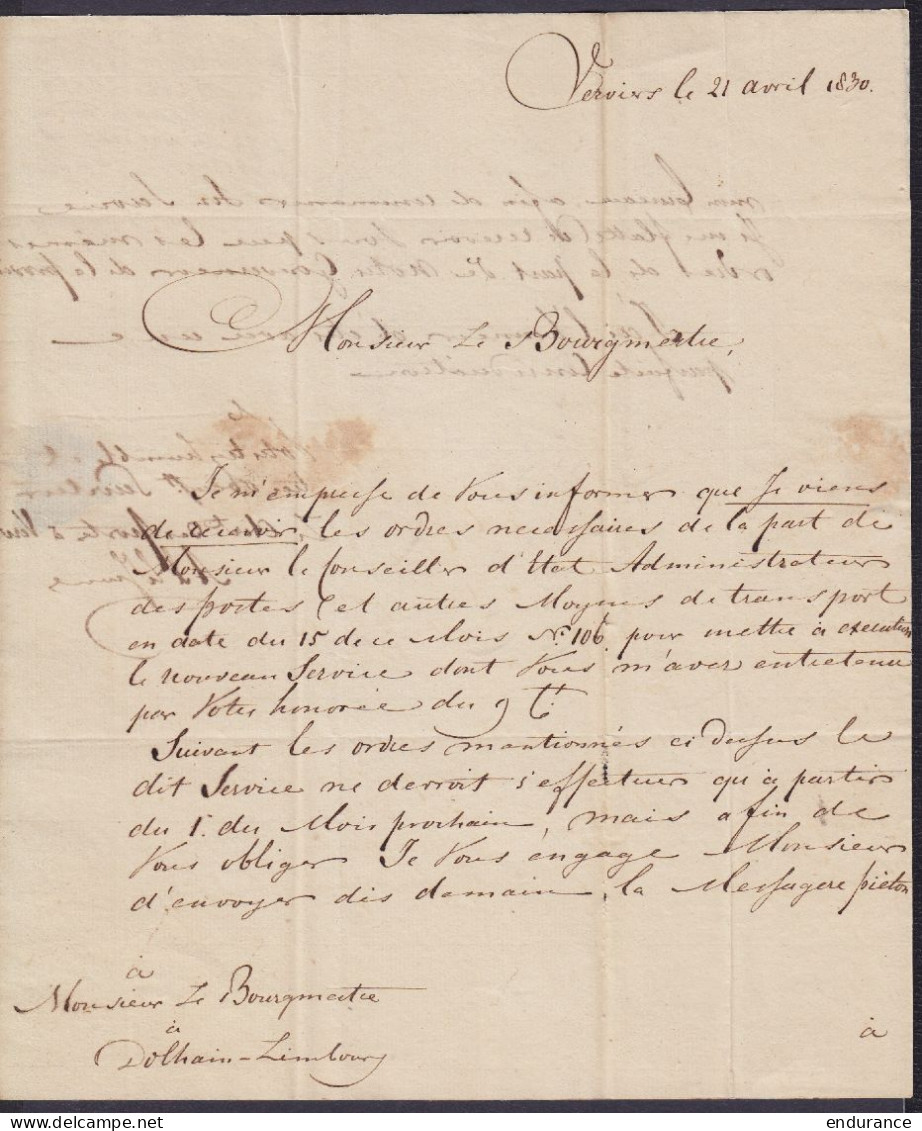 Verviers le 21 avril 1830.
Monsieur Le Bourgmestre,
Je m'empresse de Vous informer que Je viens
de recevoir, les ordres necessaires de la part de
Monsieur le Conseiller d'Etat Administrateur
des postes (et autres Moyens de transport
en date du 15 de ce Mois N° 106 pour mettre a execution
le nouveau Service dont Vous m'avez entretenu
par Votre honorée du 9 Ct.
Suivant les ordres mantionnés ci dessus le
dit Service ne devroit s'effectuer qu'a partir
du 1r. du Mois prochain, mais afin de
Vous obliger Je Vous engage Monsieur
d'envoyer dès demain, la Messagere pieton
à
à
Monsieur Le Bourgmestre
à
Dolhain-Limbourg
endurance